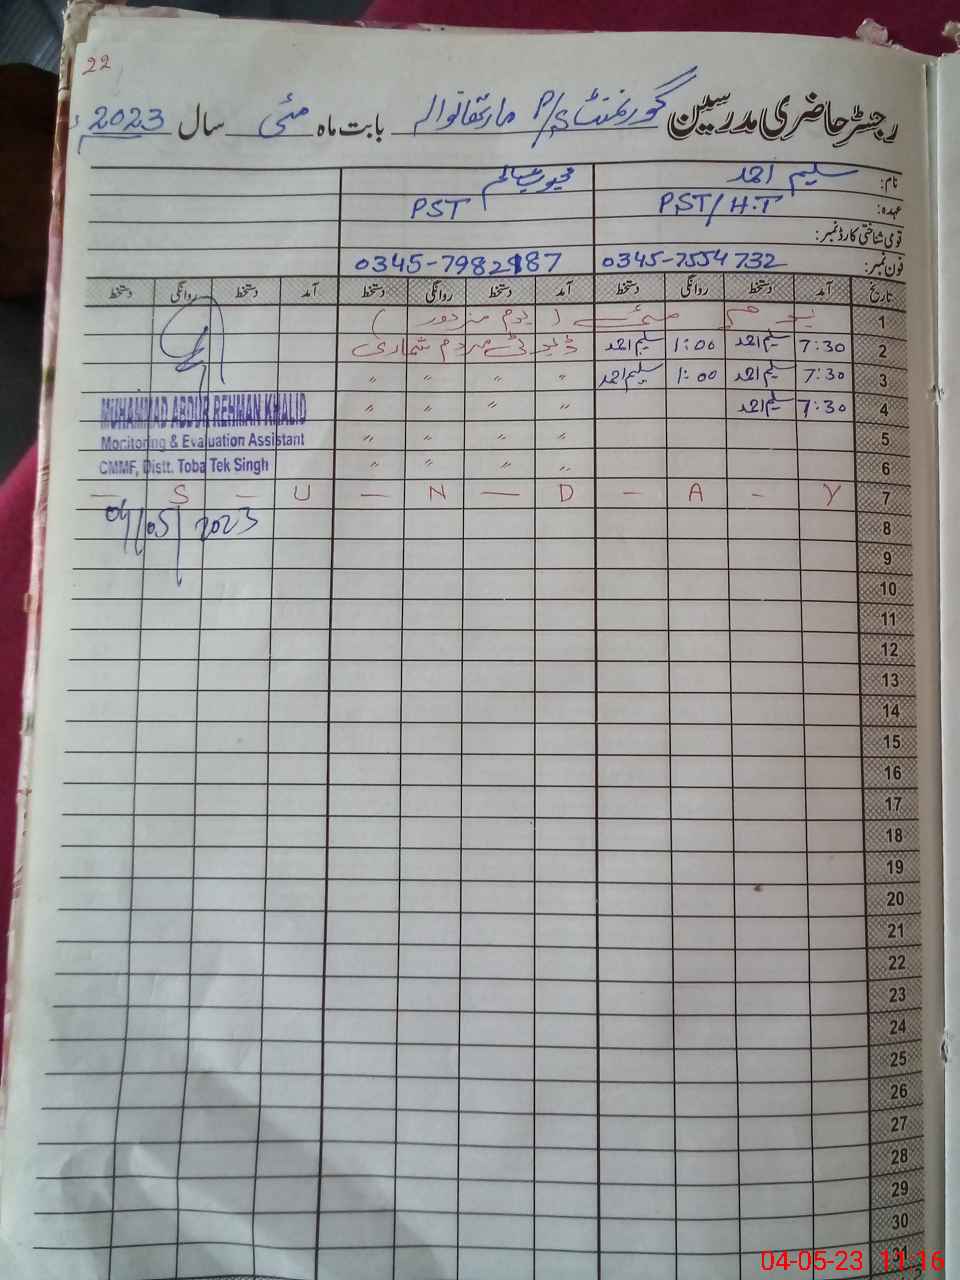 22
رجسٹر حاضری مدرسین گورنمنٹ P/S بابت ماہ مئی سال 2023ء
نام: سلیم احمد
عہدہ: PST/H.T PST
قومی شناختی کارڈ نمبر:
فون نمبر: 0345-7554732
تاریخ آمد دستخط روانگی دستخط آمد دستخط روانگی دستخط آمد دستخط روانگی دستخط
1 یوم مئی (یوم مزدور)
2 7:30 سلیم احمد 1:00 سلیم احمد ڈیوٹی مردم شماری
3 7:30 سلیم احمد 1:00 سلیم احمد 〃 〃 〃 〃
4 7:30 سلیم احمد 〃 〃 〃 〃
MUHAMMAD ABDUR REHMAN KHALID
5 〃 〃 〃 〃
Monitoring & Evaluation Assistant
6 〃 〃 〃 〃
CMMF, Distt. Toba Tek Singh
7 — S — U — N — D — A — Y
04/05/2023
8
9
10
11
12
13
14
15
16
17
18
19
20
21
22
23
24
25
26
27
28
29
30
31
04-05-23 11:16